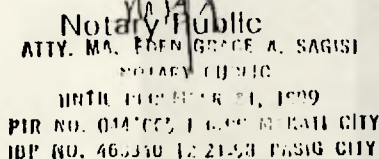 Notary Public
ATTY. MA. EDEN GRACE A. SAGISI
NOTARY PUBLIC
UNTIL DECEMBER 31, 1999
PTR NO. MAKATI CITY
IBP NO. 12-21-98 PASIG CITY